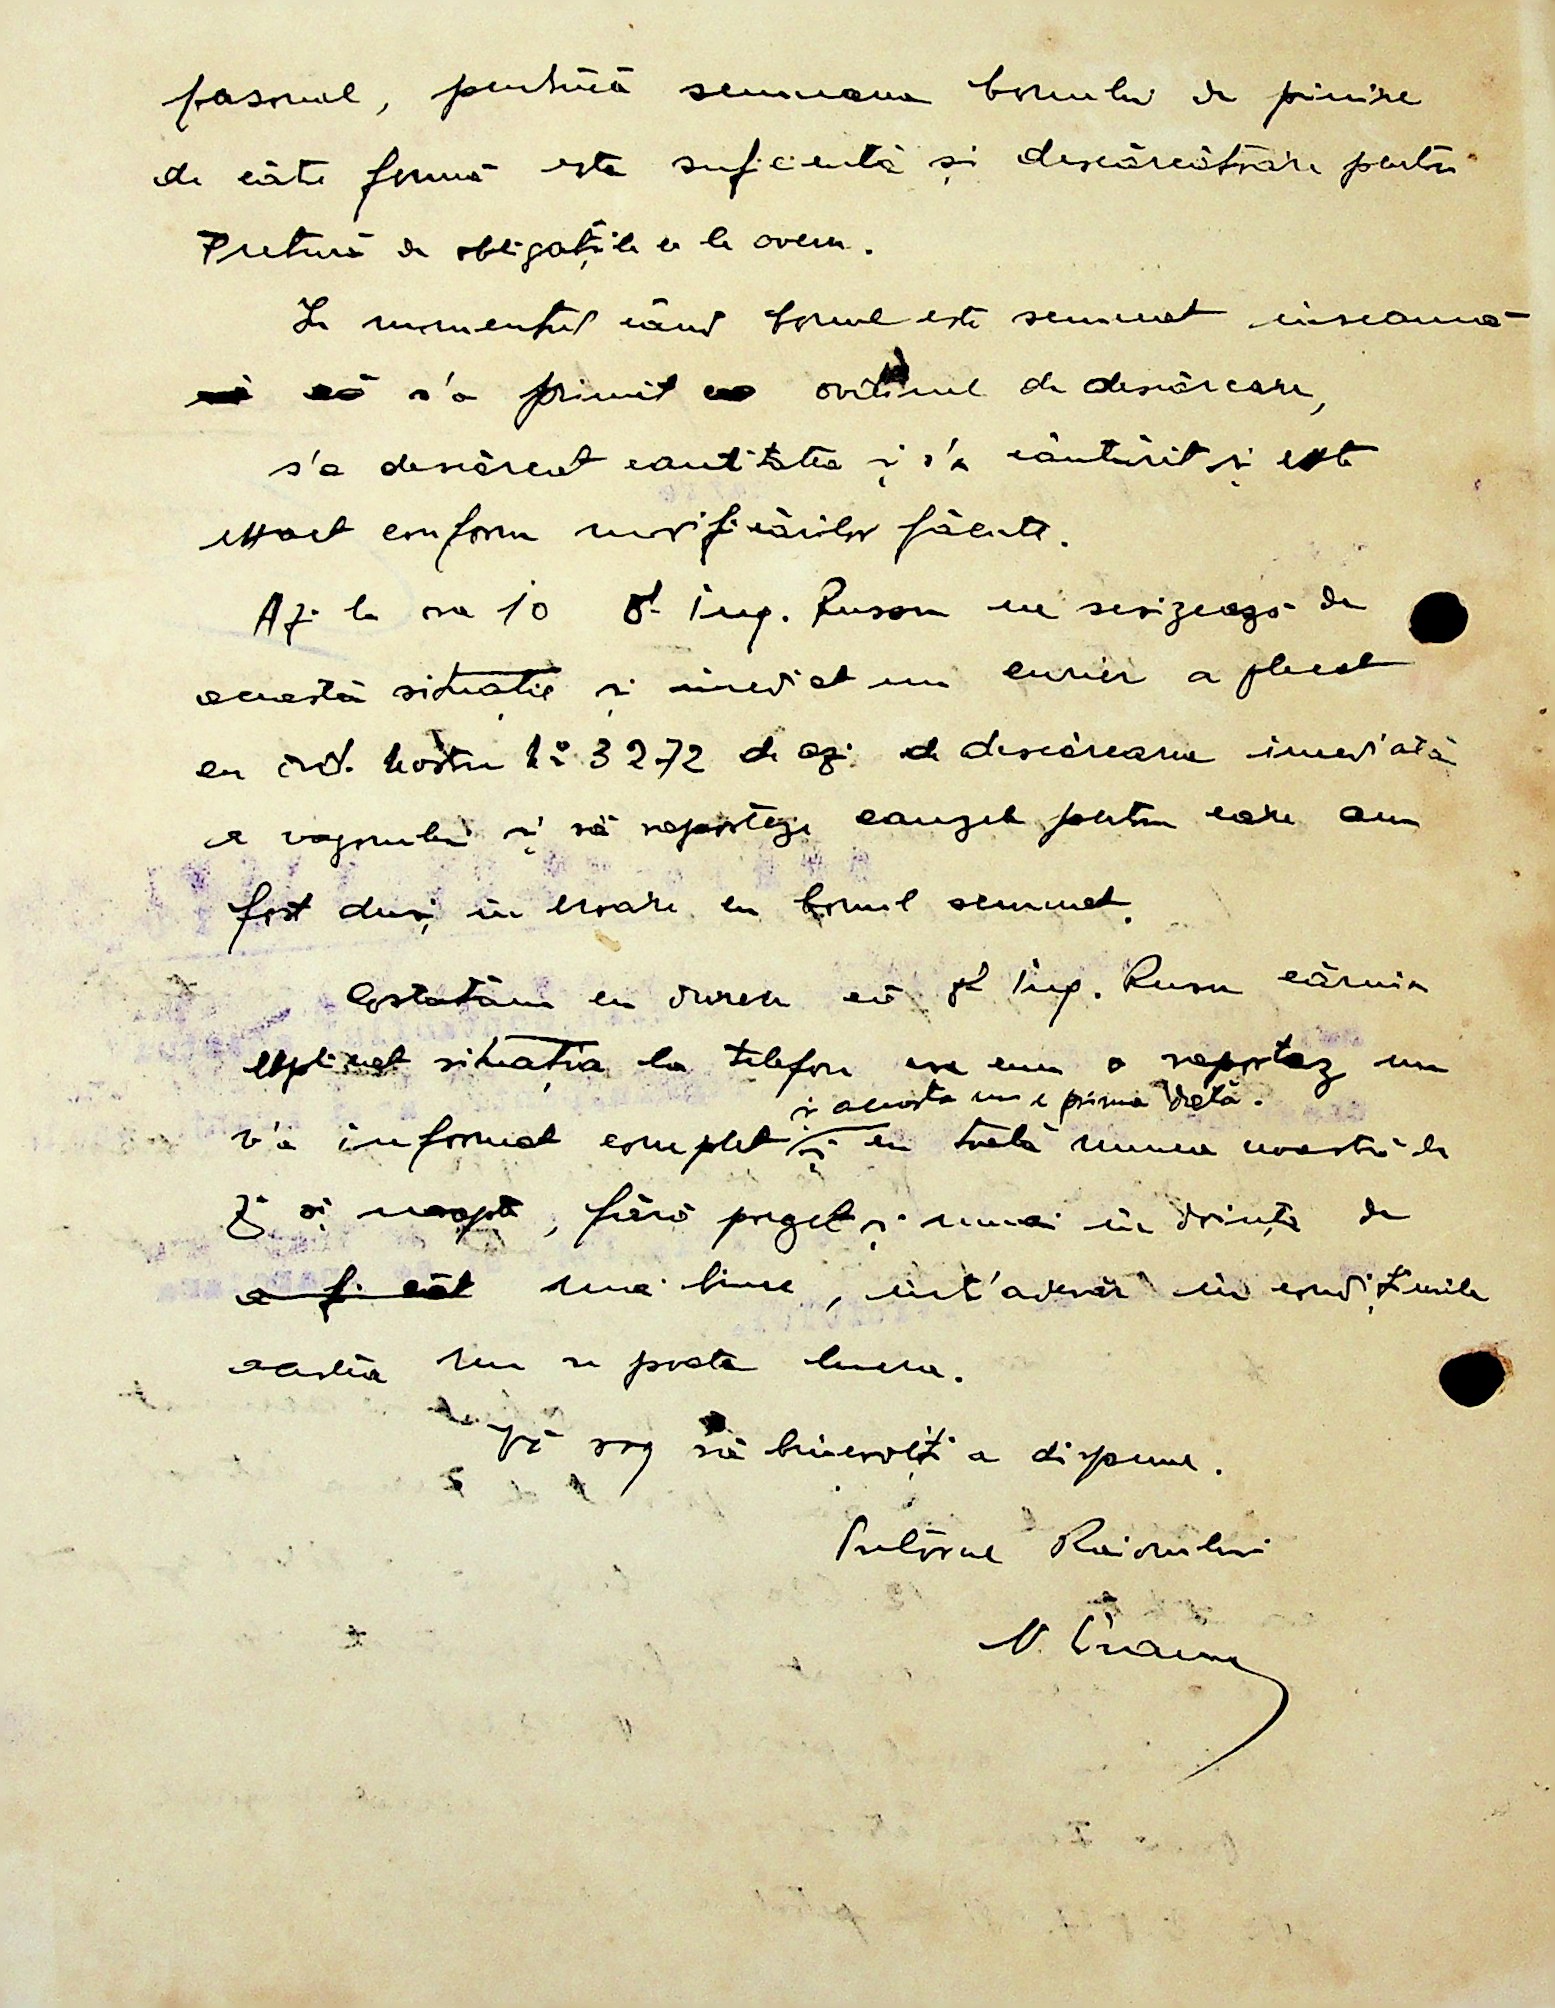 personal, pentrucă semnarea bonului de primire
de către fermă este suficientă și descărcătoare pentru
Pretură de obligațiile ce le avem.
În momentul când bonul este semnat înseamnă
că s'a primit ordinul de descărcare,
s'a descărcat cantitatea și s'a cântărit și este
exact conform verificărilor făcute.
Azi la ora 10 dl Ing. Rusan ne sesizează de
această situație și imediat un curier a plecat
cu ord. nostru No 3272 de azi de descărcarea imediată
a vagonului și să raporteze cauzele pentru care am
fost duși în eroare cu bonul semnat.
Costatăm cu durere că dl Ing. Rusu căruia
explicat situația la telefon ca cum o raportez nu
și aceasta nu e prima dată.
v'a informat complet și cu toată munca noastră de
zi și noapte, fără preget și numai în dorința de
a fi cât mai bine, înt'adevăr în condițiunile
acestea nu se poate lucra.
Vă rog să binevoiți a dispune.
Pretorul Raionului